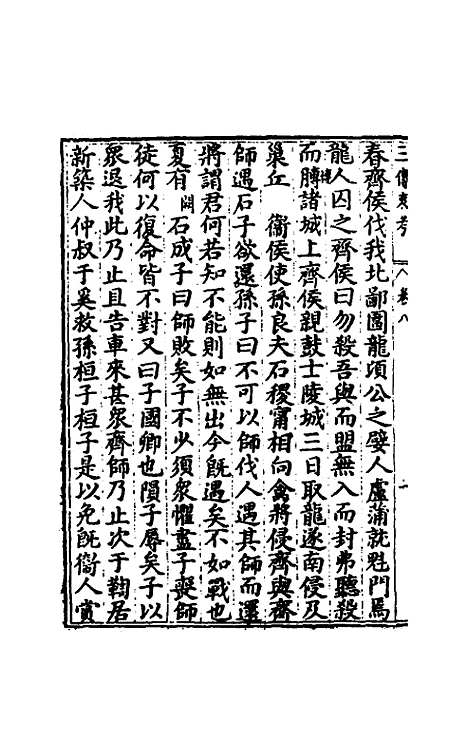 三傳
卷八
春齊侯伐我北鄙圍龍頃公之嬖人盧蒲就魁門焉
龍人囚之齊侯曰勿殺吾與而盟無入而封弗聽殺
而膊諸城上齊侯親鼓士陵城三日取龍遂南侵及
巢丘 衞侯使孫良夫石稷甯相向禽將侵齊與齊
師遇石子欲還孫子曰不可以師伐人遇其師而還
將謂君何若知不能則如無出今旣遇矣不如戰也
夏有闕 石成子曰師敗矣子不少須衆懼盡子喪師
徒何以復命皆不對又曰子國卿也隕子辱矣子以
衆退我此乃止且告車來甚衆齊師乃止次于鞫居
新築人仲叔于奚救孫桓子桓子是以免旣衞人賞